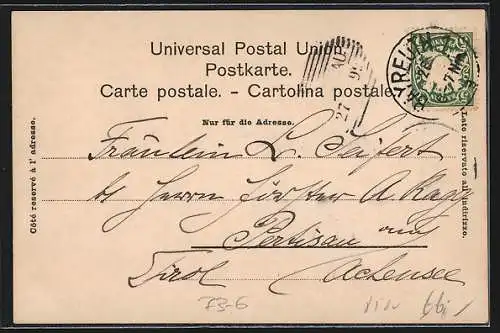 Universal Postal Union
Postkarte.
Carte postale. - Cartolina postale.
Nur für die Adresse.
Côté reservé à l'adresse.
Lato riservato all'indirizzo.
BAYREUTH
27 AU
Fräulein L. Seifert
bei Herrn Förster A.
Pertisau am
Tirol Achensee
73-6